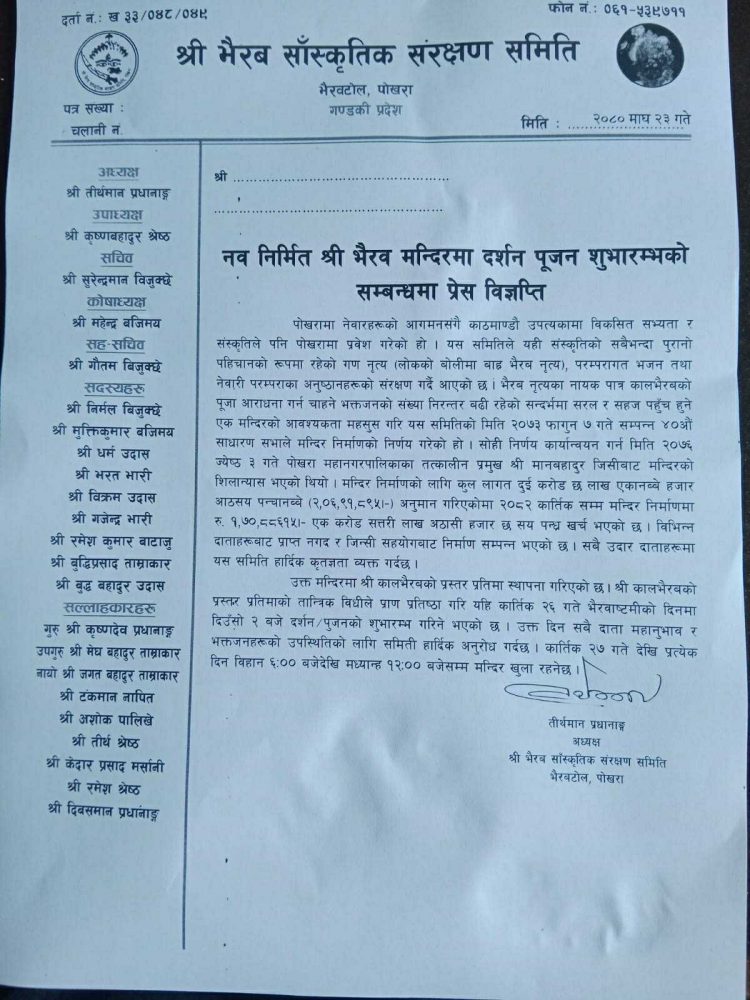 दर्ता नं.: ख ३३/०४८/०४९
फोन नं.: ०६१-५३९७११
श्री भैरब साँस्कृतिक संरक्षण समिति
भैरवटोल, पोखरा
गण्डकी प्रदेश
पत्र संख्या :
चलानी न.
मिति : २०८० माघ २३ गते
अध्यक्ष
श्री तीर्थमान प्रधानाङ्ग
उपाध्यक्ष
श्री कृष्णबहादुर श्रेष्ठ
सचिव
श्री सुरेन्द्रमान विजुक्छे
कोषाध्यक्ष
श्री महेन्द्र बजिमय
सह-सचिव
श्री गौतम बिजुक्छे
सदस्यहरु
श्री निर्मल बिजुक्छे
श्री मुक्तिकुमार बजिमय
श्री धर्म उदास
श्री भरत भारी
श्री विक्रम उदास
श्री गजेन्द्र भारी
श्री रमेश कुमार बाटाजु
श्री बुद्धिप्रसाद ताम्राकार
श्री बुद्ध बहादुर उदास
सल्लाहकारहरु
गुरु श्री कृष्णदेव प्रधानाङ्ग
उपगुरु श्री मेघ बहादुर ताम्राकार
नायो श्री जगत बहादुर ताम्राकार
श्री टंकमान नापित
श्री अशोक पालिखे
श्री तीर्थ श्रेष्ठ
श्री केदार प्रसाद मर्सानी
श्री रमेश श्रेष्ठ
श्री दिबसमान प्रधानांङ्ग
श्री ................................................
..................................................
नव निर्मित श्री भैरव मन्दिरमा दर्शन पूजन शुभारम्भको
सम्बन्धमा प्रेस विज्ञप्ति
पोखरामा नेवारहरूको आगमनसंगै काठमाण्डौ उपत्यकामा विकसित सभ्यता र
संस्कृतिले पनि पोखरामा प्रवेश गरेको हो । यस समितिले यही संस्कृतिको सबैभन्दा पुरानो
पहिचानको रूपमा रहेको गण नृत्य (लोकको बोलीमा बाह्र भैरव नृत्य), परम्परागत भजन तथा
नेवारी परम्पराका अनुष्ठानहरूको संरक्षण गर्दै आएको छ । भैरव नृत्यका नायक पात्र कालभैरबको
पूजा आराधना गर्न चाहने भक्तजनको संख्या निरन्तर बढी रहेको सन्दर्भमा सरल र सहज पहुँच हुने
एक मन्दिरको आवश्यकता महसुस गरि यस समितिको मिति २०७३ फागुन ७ गते सम्पन्न ४०औं
साधारण सभाले मन्दिर निर्माणको निर्णय गरेको हो । सोही निर्णय कार्यान्वयन गर्न मिति २०७६
ज्येष्ठ ३ गते पोखरा महानगरपालिकाका तत्कालीन प्रमुख श्री मानबहादुर जिसीबाट मन्दिरको
शिलान्यास भएको थियो । मन्दिर निर्माणको लागि कुल लागत दुई करोड छ लाख एकानब्बे हजार
आठसय पन्चानब्बे (२,०६,९१,८९५।-) अनुमान गरिएकोमा २०८२ कार्तिक सम्म मन्दिर निर्माणमा
रु. १,७०,८८६१५।- एक करोड सत्तरी लाख अठासी हजार छ सय पन्ध्र खर्च भएको छ । विभिन्न
दाताहरूबाट प्राप्त नगद र जिन्सी सहयोगबाट निर्माण सम्पन्न भएको छ । सबै उदार दाताहरूमा
यस समिति हार्दिक कृतज्ञता व्यक्त गर्दछ ।
उक्त मन्दिरमा श्री कालभैरबको प्रस्तर प्रतिमा स्थापना गरिएको छ । श्री कालभैरबको
प्रस्तर प्रतिमाको तान्त्रिक विधीले प्राण प्रतिष्ठा गरि यहि कार्तिक २६ गते भैरवाष्टमीको दिनमा
दिउँसो २ बजे दर्शन/पुजनको शुभारम्भ गरिने भएको छ । उक्त दिन सबै दाता महानुभाव र
भक्तजनहरूको उपस्थितिको लागि समिती हार्दिक अनुरोध गर्दछ । कार्तिक २७ गते देखि प्रत्येक
दिन विहान ६:०० बजेदेखि मध्यान्ह १२:०० बजेसम्म मन्दिर खुला रहनेछ ।
तीर्थमान प्रधानाङ्ग
अध्यक्ष
श्री भैरब साँस्कृतिक संरक्षण समिति
भैरबटोल, पोखरा